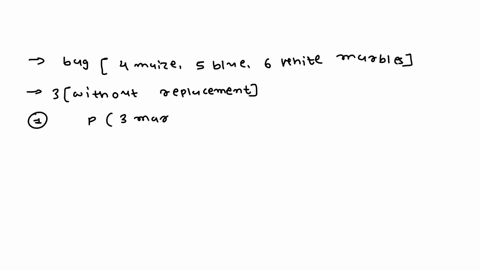 → bag [ 4 maize, 5 blue, 6 white marbles]
→ 3 [without replacement]
① P ( 3 mar